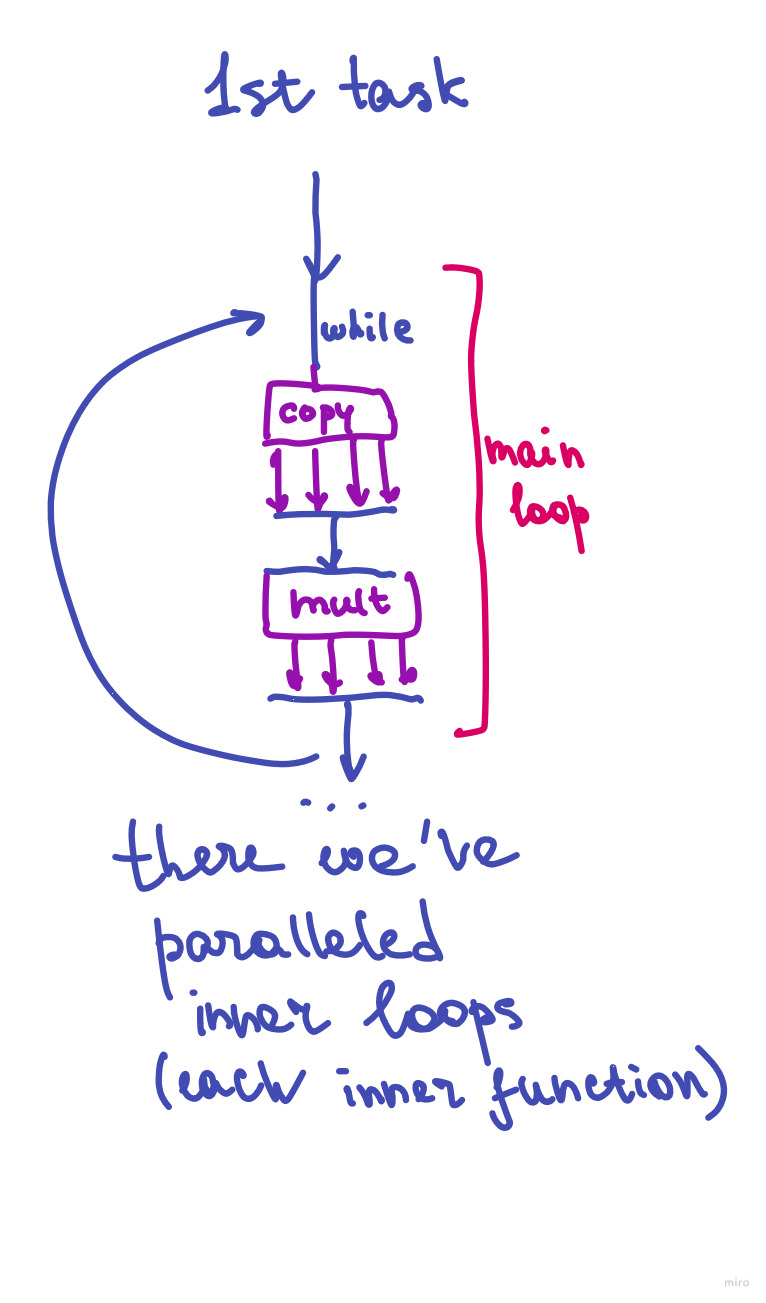 1st task
while
copy
main
loop
mult
...
there we've
paralleled
inner loops
(each inner function)
miro